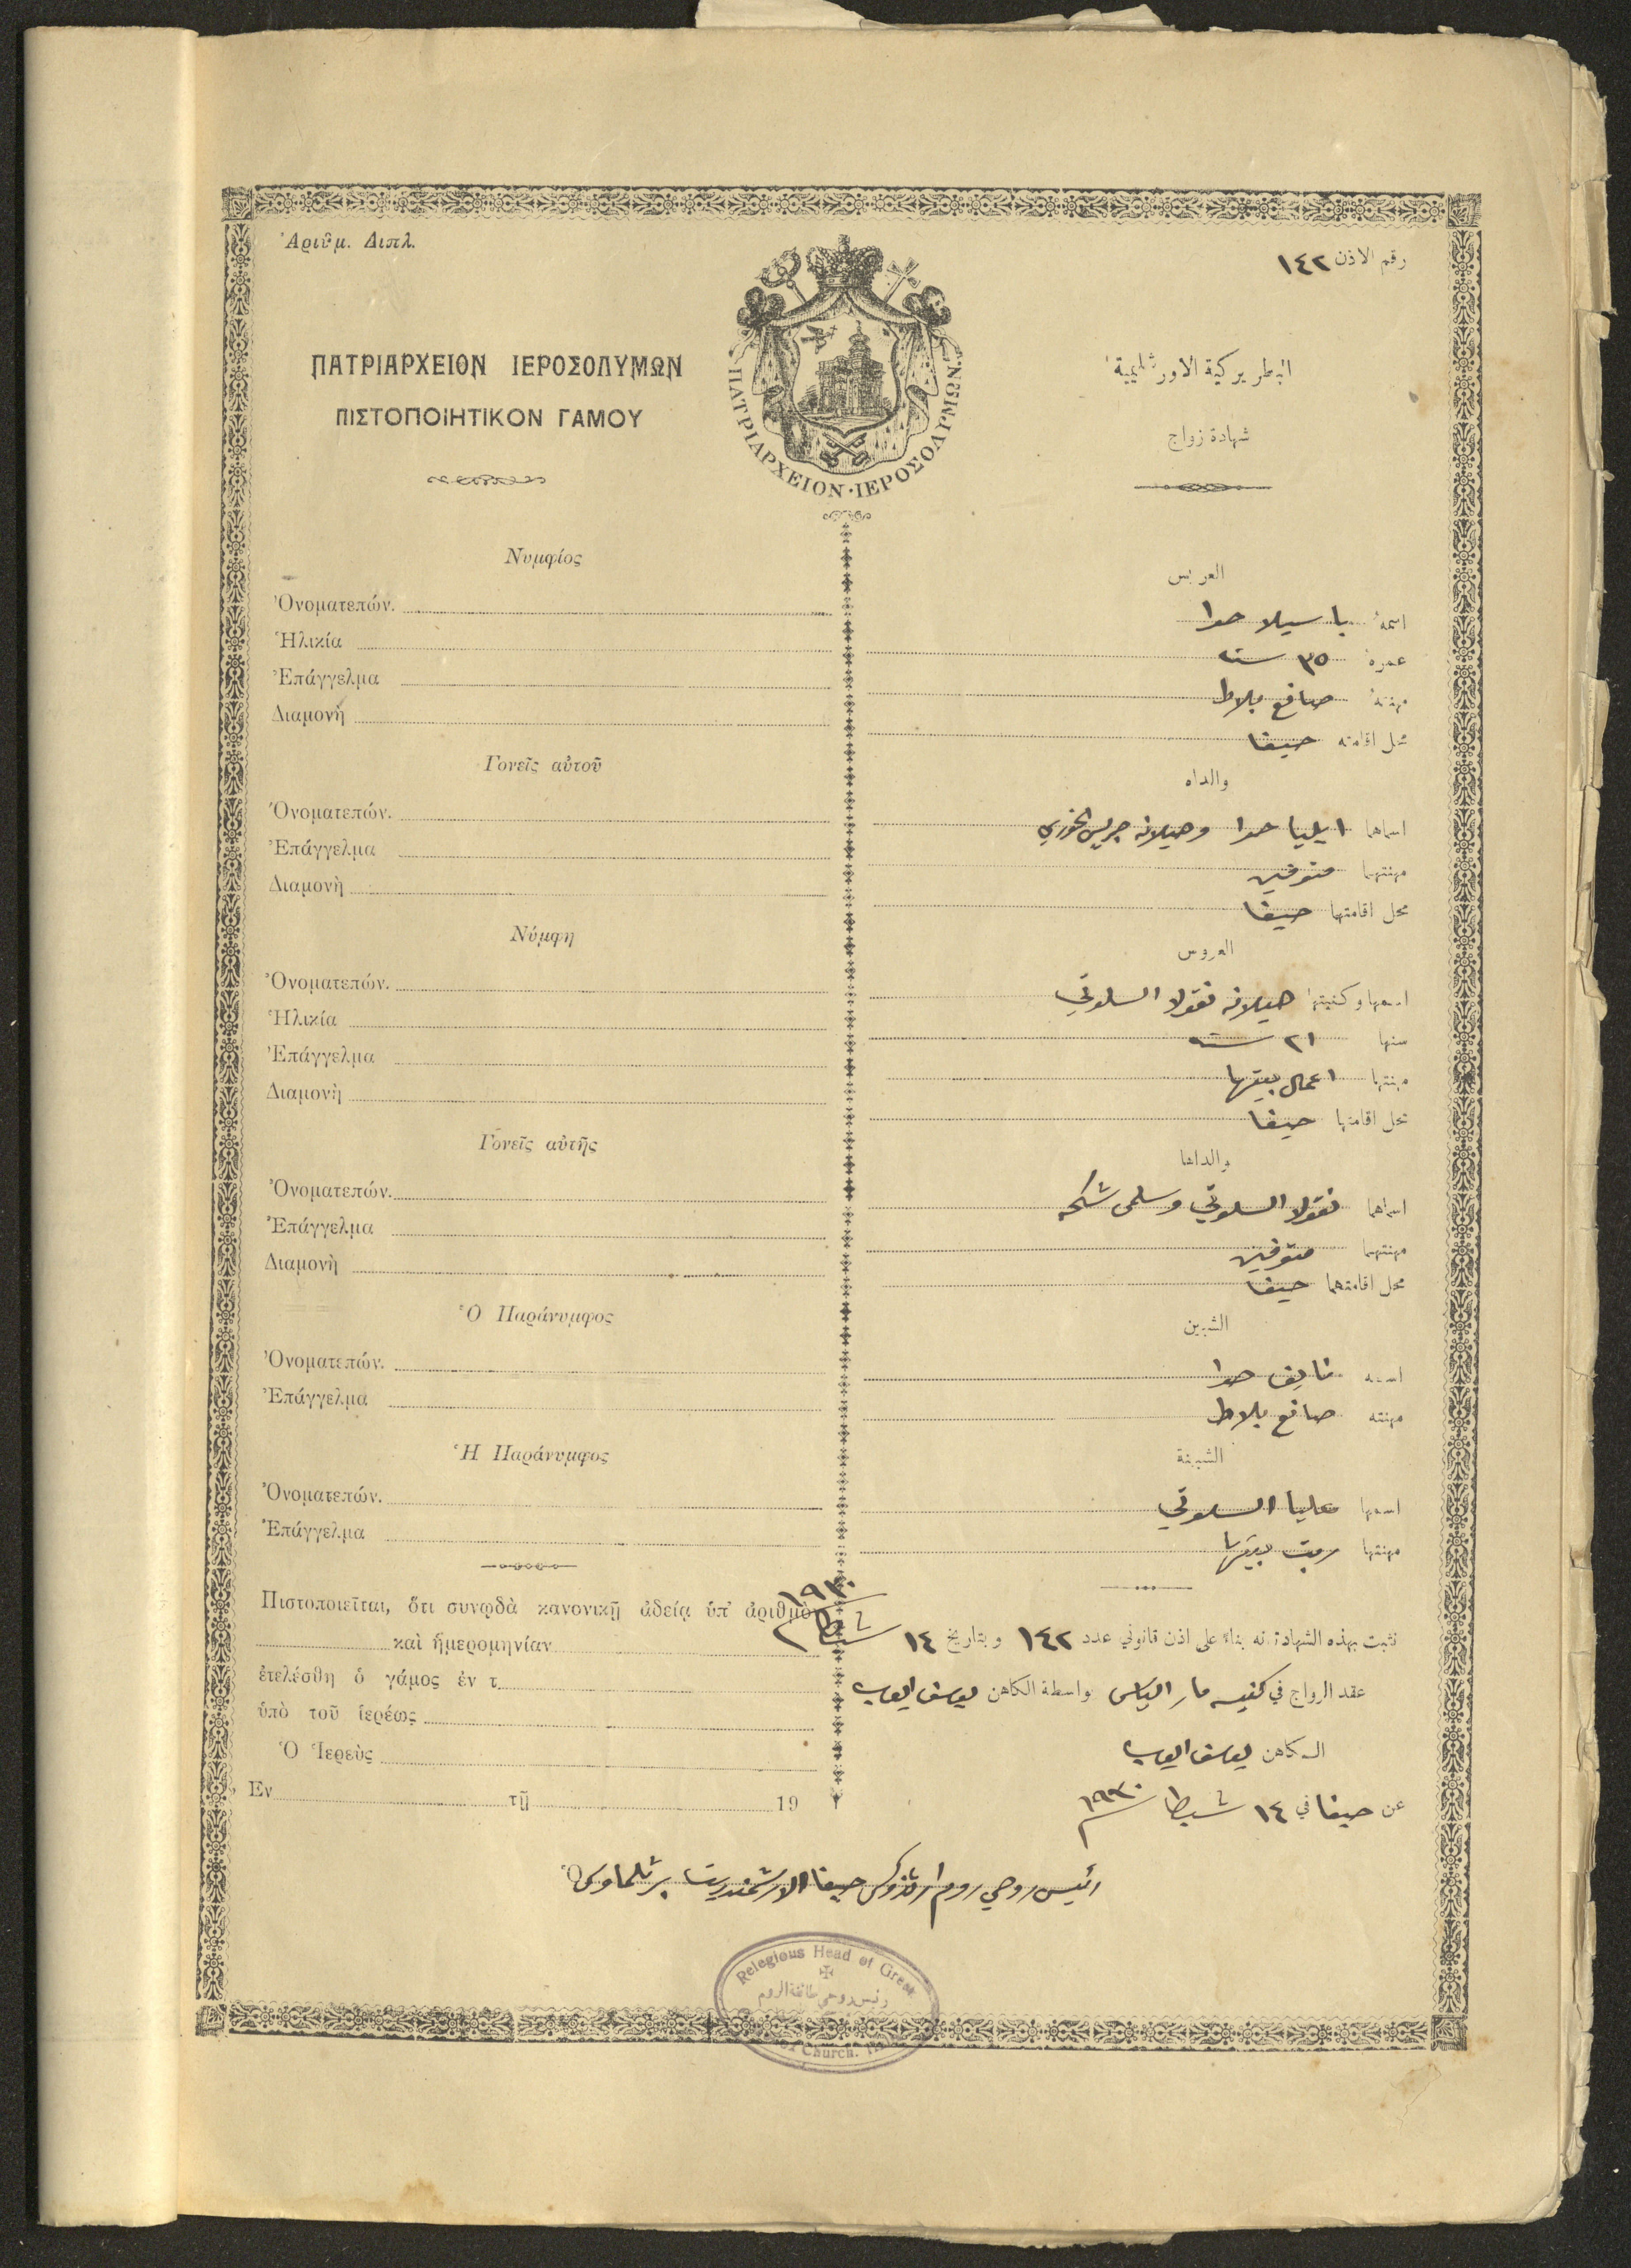 Ἀριθμ. Διπλ.
رقم الاذن ١٤٢
ΠΑΤΡΙΑΡΧΕΙΟΝ ΙΕΡΟΣΟΛΥΜΩΝ
ΠΙΣΤΟΠΟΙΗΤΙΚΟΝ ΓΑΜΟΥ
ΠΑΤΡΙΑΡΧΕΙΟΝ·ΙΕΡΟΣΟΛΥΜΩΝ
البطريركية الاورشليمية
شهادة زواج
Νυμφίος
Ὀνοματεπών.
Ἡλικία
Ἐπάγγελμα
Διαμονὴ
Γονεῖς αὐτοῦ
Ὀνοματεπών.
Ἐπάγγελμα
Διαμονὴ
Νύμφη
Ὀνοματεπών.
Ἡλικία
Ἐπάγγελμα
Διαμονὴ
Γονεῖς αὐτῆς
Ὀνοματεπών.
Ἐπάγγελμα
Διαμονὴ
Ὁ Παράνυμφος
Ὀνοματεπών.
Ἐπάγγελμα
Ἡ Παράνυμφος
Ὀνοματεπών.
Ἐπάγγελμα
Πιστοποιεῖται, ὅτι συνῳδὰ κανονικῇ ἀδείᾳ ὑπ' ἀριθμὸν
καὶ ἡμερομηνίαν
ἐτελέσθη ὁ γάμος ἐν τ
ὑπὸ τοῦ ἱερέως
Ὁ Ἱερεὺς
Ἐν τῇ 19
العريس
اسمهُ باسيلا حوا
عمرهُ ٣٥ سنة
مهنتهُ صانع بلاط
محل اقامته حيفا
والداه
اسماهما ايليا حوا وهيلانه جريس الخوري
مهنتهما متوفين
محل اقامتهما حيفا
العروس
اسمها وكنيتها هيلانه نقولا السلوتي
سنها ٢١ سنة
مهنتها اعمال بيتها
محل اقامتها حيفا
والداها
اسماهما نقولا السلوتي وسلمى
مهنتهما متوفين
محل اقامتهما حيفا
الشبين
اسمه نايف حوا
مهنته صانع بلاط
الشبينة
اسمها عليا السلوتي
مهنتها ربت بيتها
نثبت بهذه الشهادة انه بناء على اذن قانوني عدد ١٤٢ وبتاريخ ١٤ شباط ١٩٣٠
عقد الزواج في كنيسه مار الياس بواسطة الكاهن يوسف ايوب
الكاهن يوسف ايوب
عن حيفا في ١٤ شباط ١٩٣٠
رئيس روحي روم ارثوذكس حيفا الارشمندريت برثلماوس
Relegious Head of Greek
رئيس روحي طائفة الروم
Church.